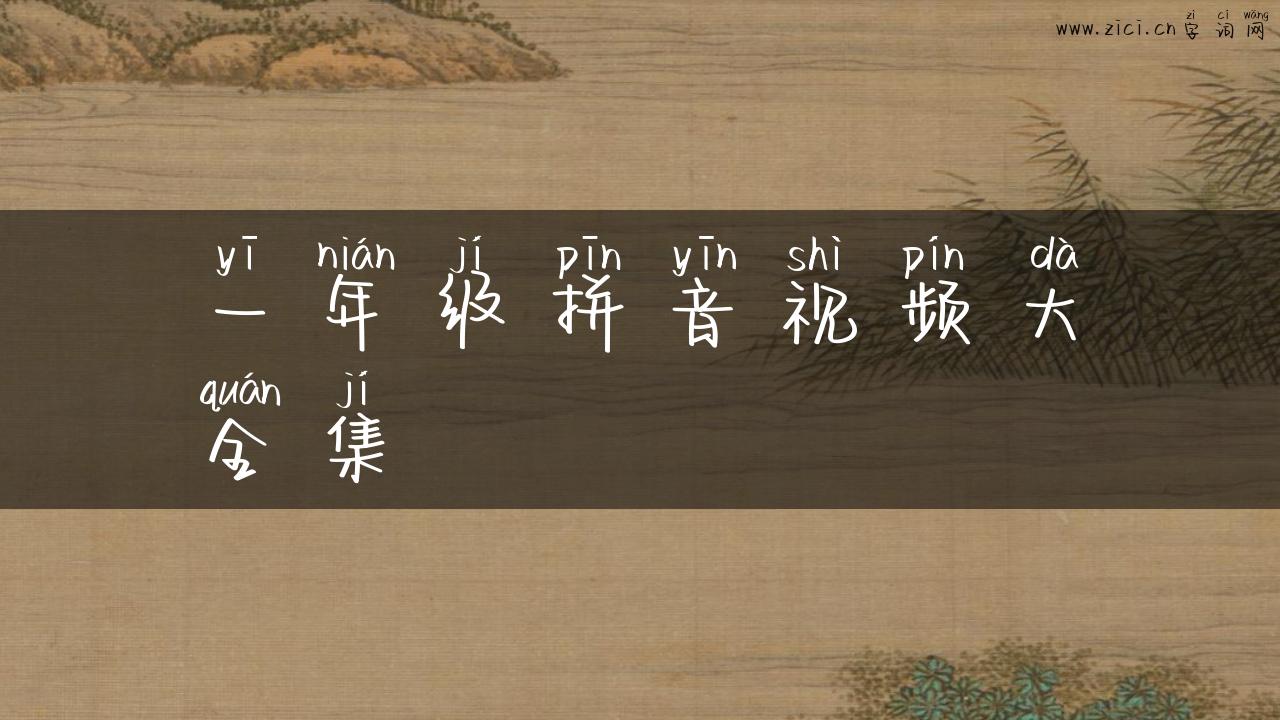 zì cí wǎng
www.zici.cn 字词网
yī nián jí pīn yīn shì pín dà
一年级拼音视频大
quán jí
全集